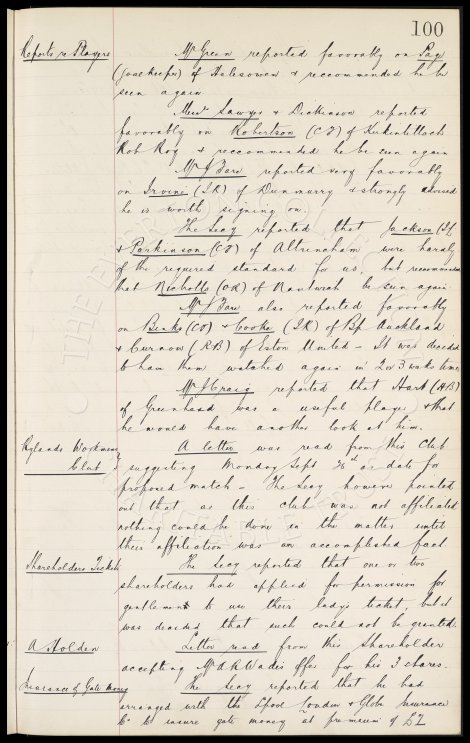 100
Reports re Players
Mr Green reported favorably on Page
(Goalkeeper) of Halesowen & reccommended he be
seen again
Messrs Sawyer & Dickinson reported
favorably on Robertson (CF) of Kirkintilloch
Rob Roy & reccommended he be seen again
Mr J Fare reported very favorably
on Irvine (IR) of Dunmurry & strongly advised
he is worth signing on.
The Secy reported that Jackson
& Parkinson (CF) of Altrincham were hardly
of the required standard for us, but recommended
that Nicholls (OR) of Nantwich be seen again
Mr J Fare also reported favorably
on Binks (CF) & Cooke (IR) of Bp Auckland
& Curnow (RB) of Eston United - It was decided
to have them watched again in 2 or 3 weeks time
Mr J Craig reported that Hart (HB)
of Greenhead was a useful player & that
he would have another look at him.
Rylands Workmens
Club
A letter was read from this Club
suggesting Monday Sept as date for
proposed match - The Secy however pointed
out that as this club was not affiliated
nothing could be done in the matter until
their affiliation was an accomplished fact
Shareholders Tickets
The Secy reported that one or two
shareholders had applied for permission for
gentlemen to use their ladys ticket, but it
was decided that such could not be granted.
A Holden
Letter read from this Shareholder
accepting Mr A R Wades offer for his 3 shares.
Insurance of Gate Money
The Secy reported that he had
arranged with the Lpool London & Globe Insurance
Co to insure gate money at premium of £7
THE EVERTON